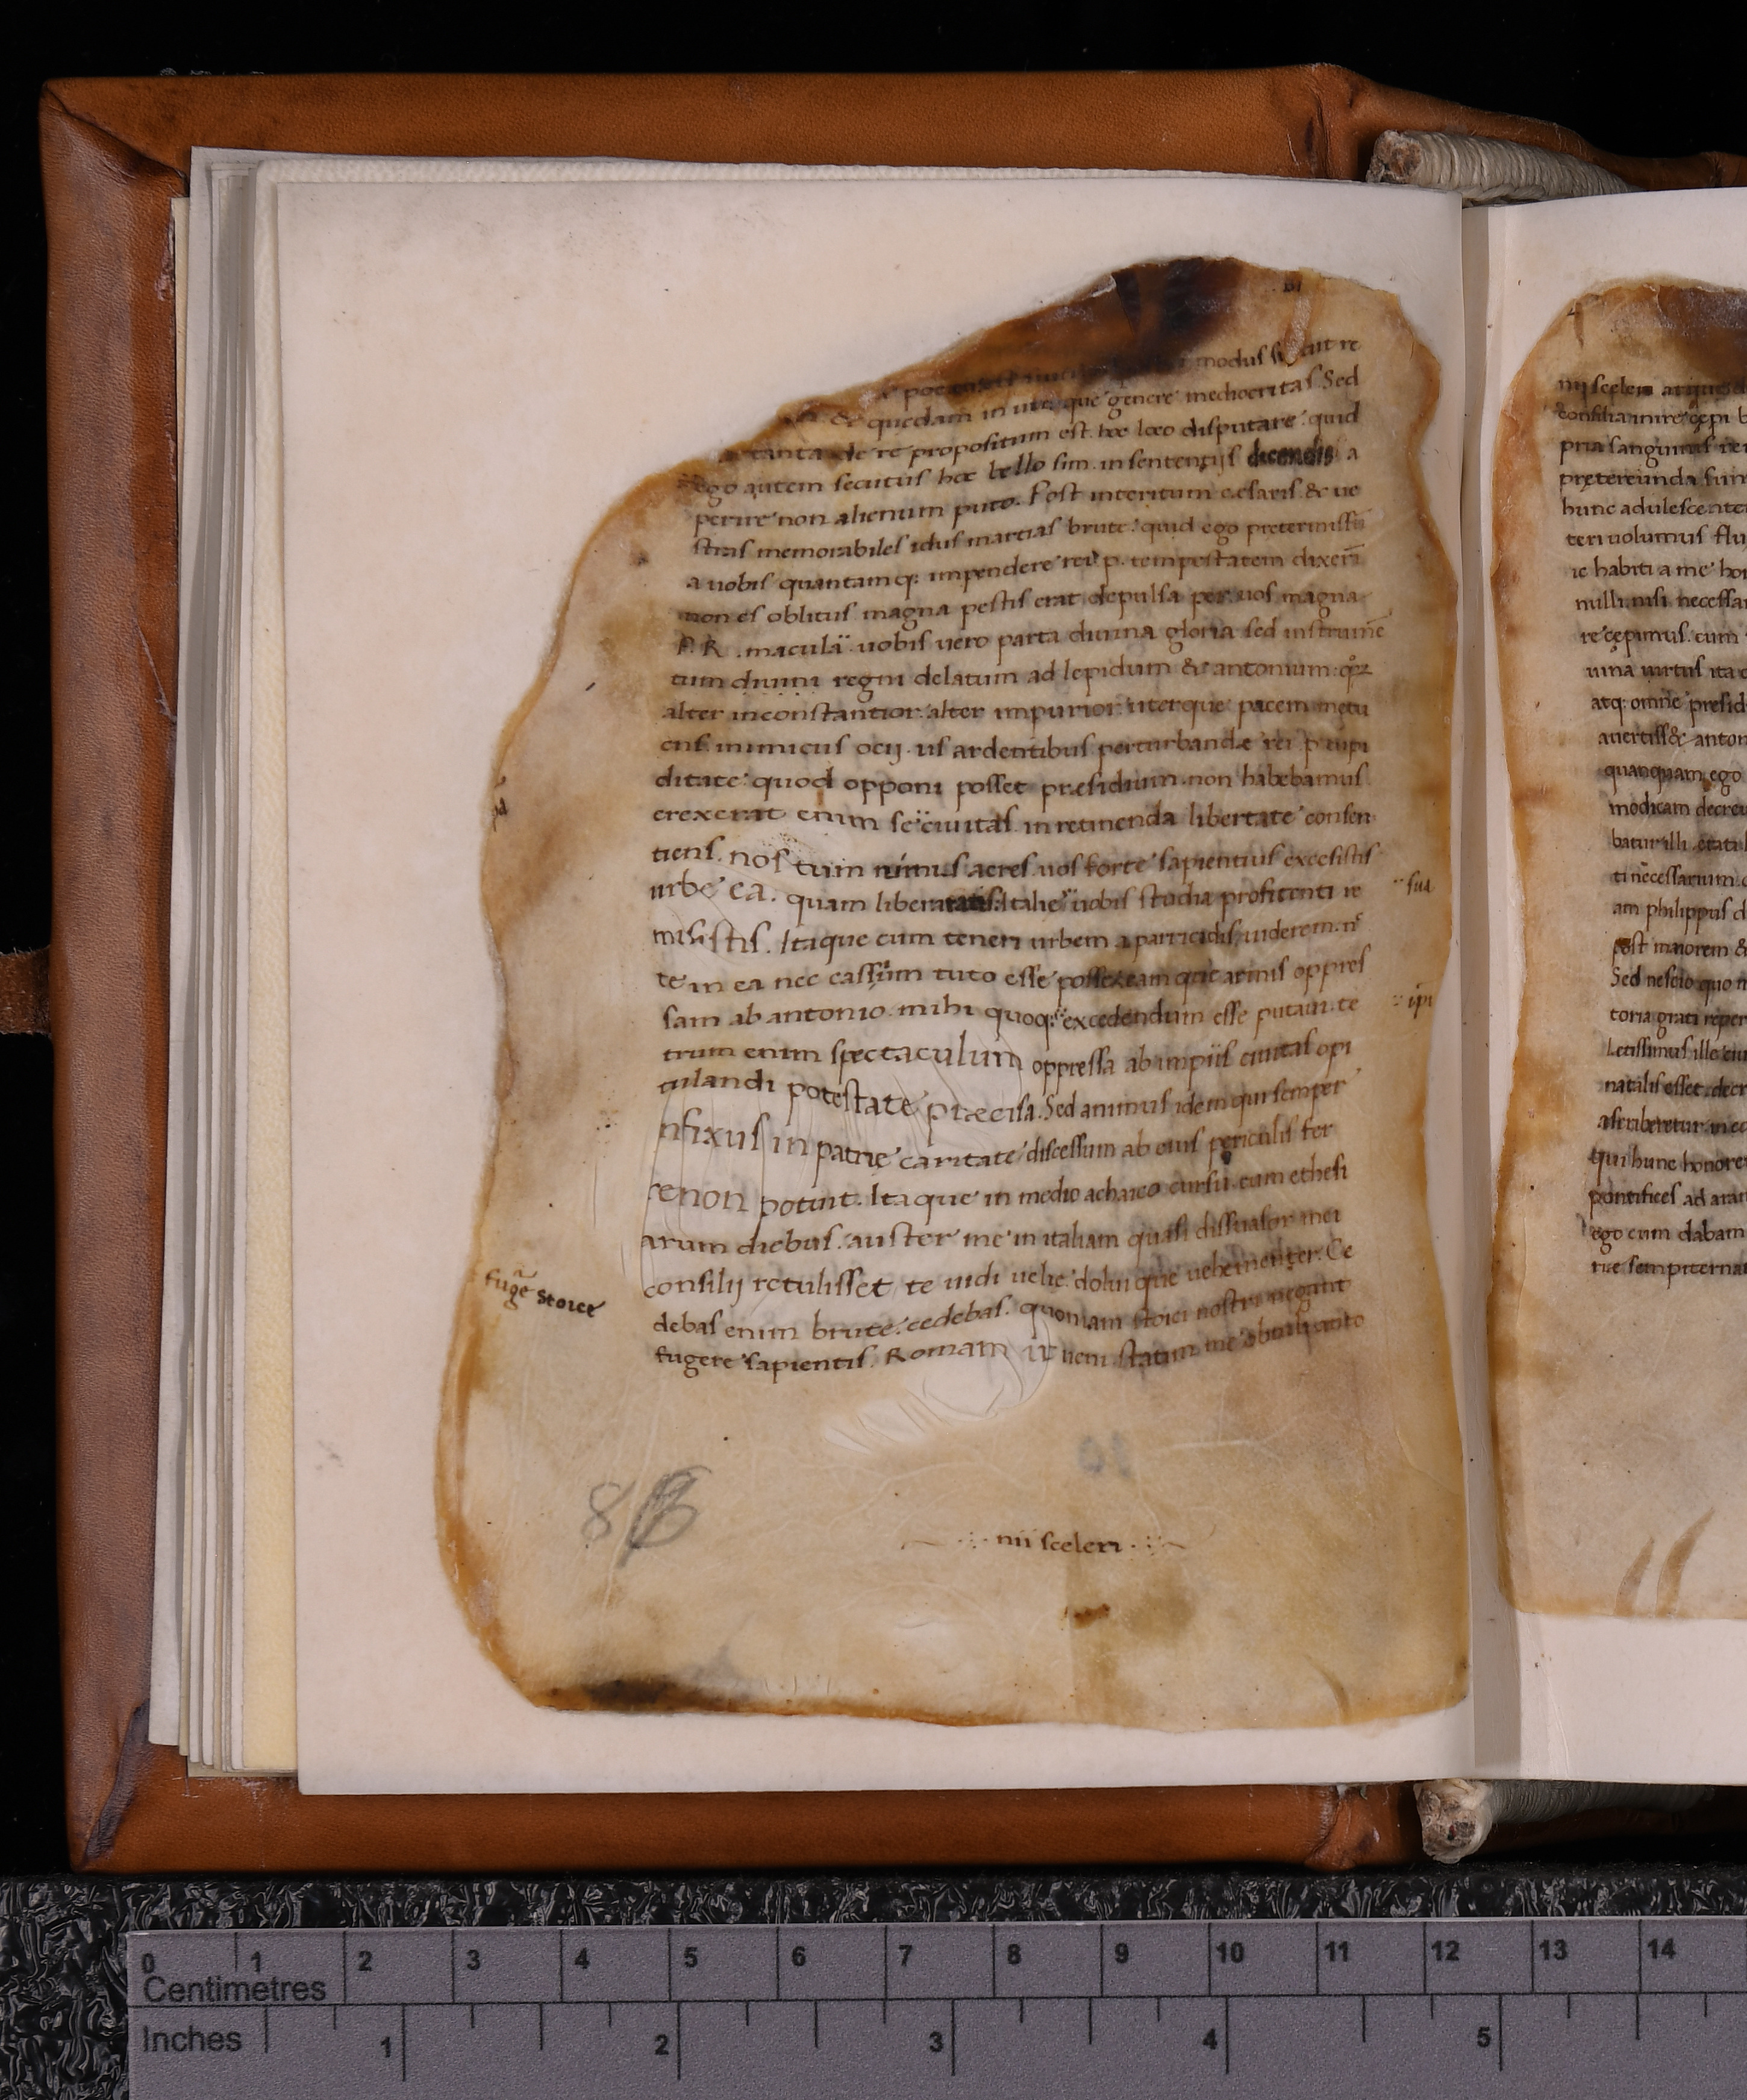 modus
& quedam in utroque genere mediocritas. Sed
tanta de re propositum est hoc loco disputare quid
ego autem secutus hoc bello sim in sententijs dicendis a
perire non alienum puto. Post interitum cesaris & ue
stras memorabiles idus martias brute. quid ego pretermissū
a uobis quantamq; impendere rei p. tempestatem dixerī
non es oblitus magna pestis erat depulsa per uos magna
P. R. macula uobis uero parta diuina gloria sed instrumē
tum diuini regni delatum ad lepidum & antonium
alter inconstantior. alter impurior. uterque pacem metu
ens. inimicus ocij. us ardentibus perturbande rei p cupi
ditate quod opponi posset presidium non habebamus
erexerat enim se ciuitas. in retinenda libertate consen
tiens. nos tum nimus acres. uos forte sapientius excesistis
urbe ea. quam italie uobis studia profitenti re
misistis. Itaque cum teneri urbem a parricidis uiderem. n
te in ea nec cassium tuto esse posse. eamque armis oppres
sam ab antonio. mihi quoq; excedendum esse putaui. te
trum enim spectaculum oppressa ab impiis ciuitas opi
tulandi potestate precisa. Sed animus idem qui semper
nfixus in patrie caritate discessum ab eius periculis fer
re non potuit. Itaque in medio achaico cursu. cum ethesi
arum diebus. auster me in italiam quasi dissuasor mei
consilij retulisset. te uidi uelie. dolui que uehementer. Ce
debas enim brute. cedebas. quoniam stoici nostri negant
fugere sapientis. Romam ut ueni statim me obtuli anto
sua
ipi
fugē stoice
86
ni sceleri
mi sceleris atque
consilia inire cepi b
pria sanguinis
pretereunda sun
hunc adulescente
teri uolumus flu
ie habiti a me ho
nulli nisi necessar
recepimus. cum
uina uirtus ita e
atq; omne presid
auertiss& anton
quanquam ego
modicam decreu
batur illi etati
ti necessarium.
am philippus d
post maiorem &
Sed nescio quo m
toria grati reper
Letissimus ille ciu
natalis esset. decr
ascriberetur in ea
qui hunc honore
pontifices ad aram
ego cum dabam
rie sempiterna
0 1 2 3 4 5 6 7 8 9 10 11 12 13 14
Centimetres
Inches 1 2 3 4 5